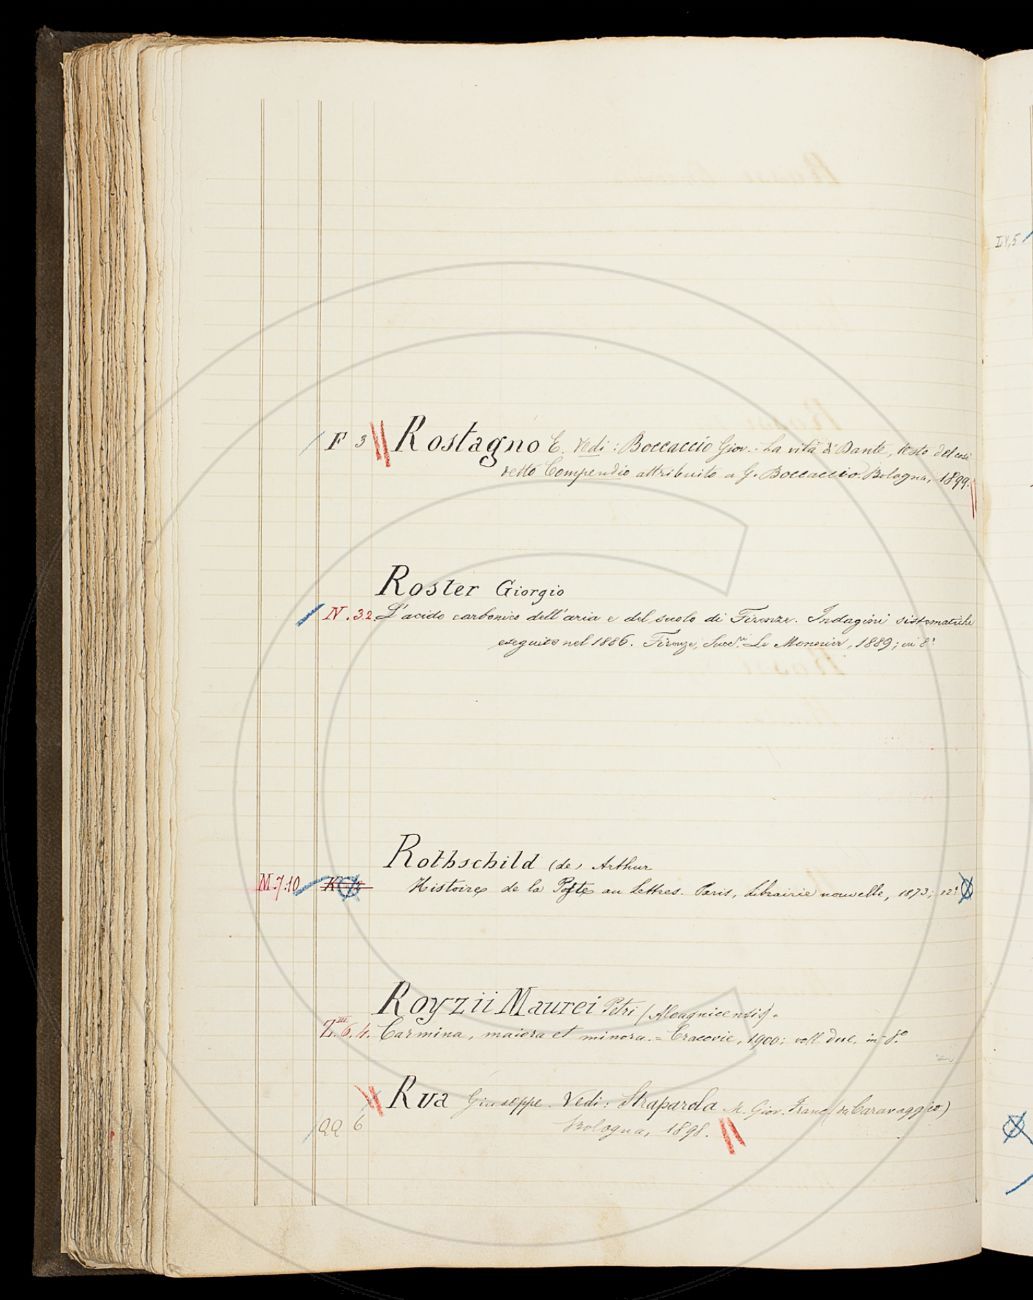 IV,5
F 3 Rostagno E. Vedi: Boccaccio Giov. - La vita di Dante, testo del così
detto Compendio attribuito a G. Boccaccio. Bologna, 1899.
Roster Giorgio
N. 32 L'acido carbonico dell'aria e del suolo di Firenze. Indagini sistematiche
eseguite nel 1886. Firenze, Succ.ri Le Monnier, 1889; in 8°
Rothschild (de) Arthur
M.7.10 Histoire de la Poste au Lettres. Paris, Librairie nouvelle, 1873; 12°
Royzii Maurei Petri (Alcagnicensis).
Z.III 6.4. Carmina, maiora et minora. = Cracovie, 1900; voll. due, in 8.°
Rua Giuseppe. Vedi: Straparola M. Giov. Franc. (da Caravaggio)
QQ 6 Bologna, 1898.